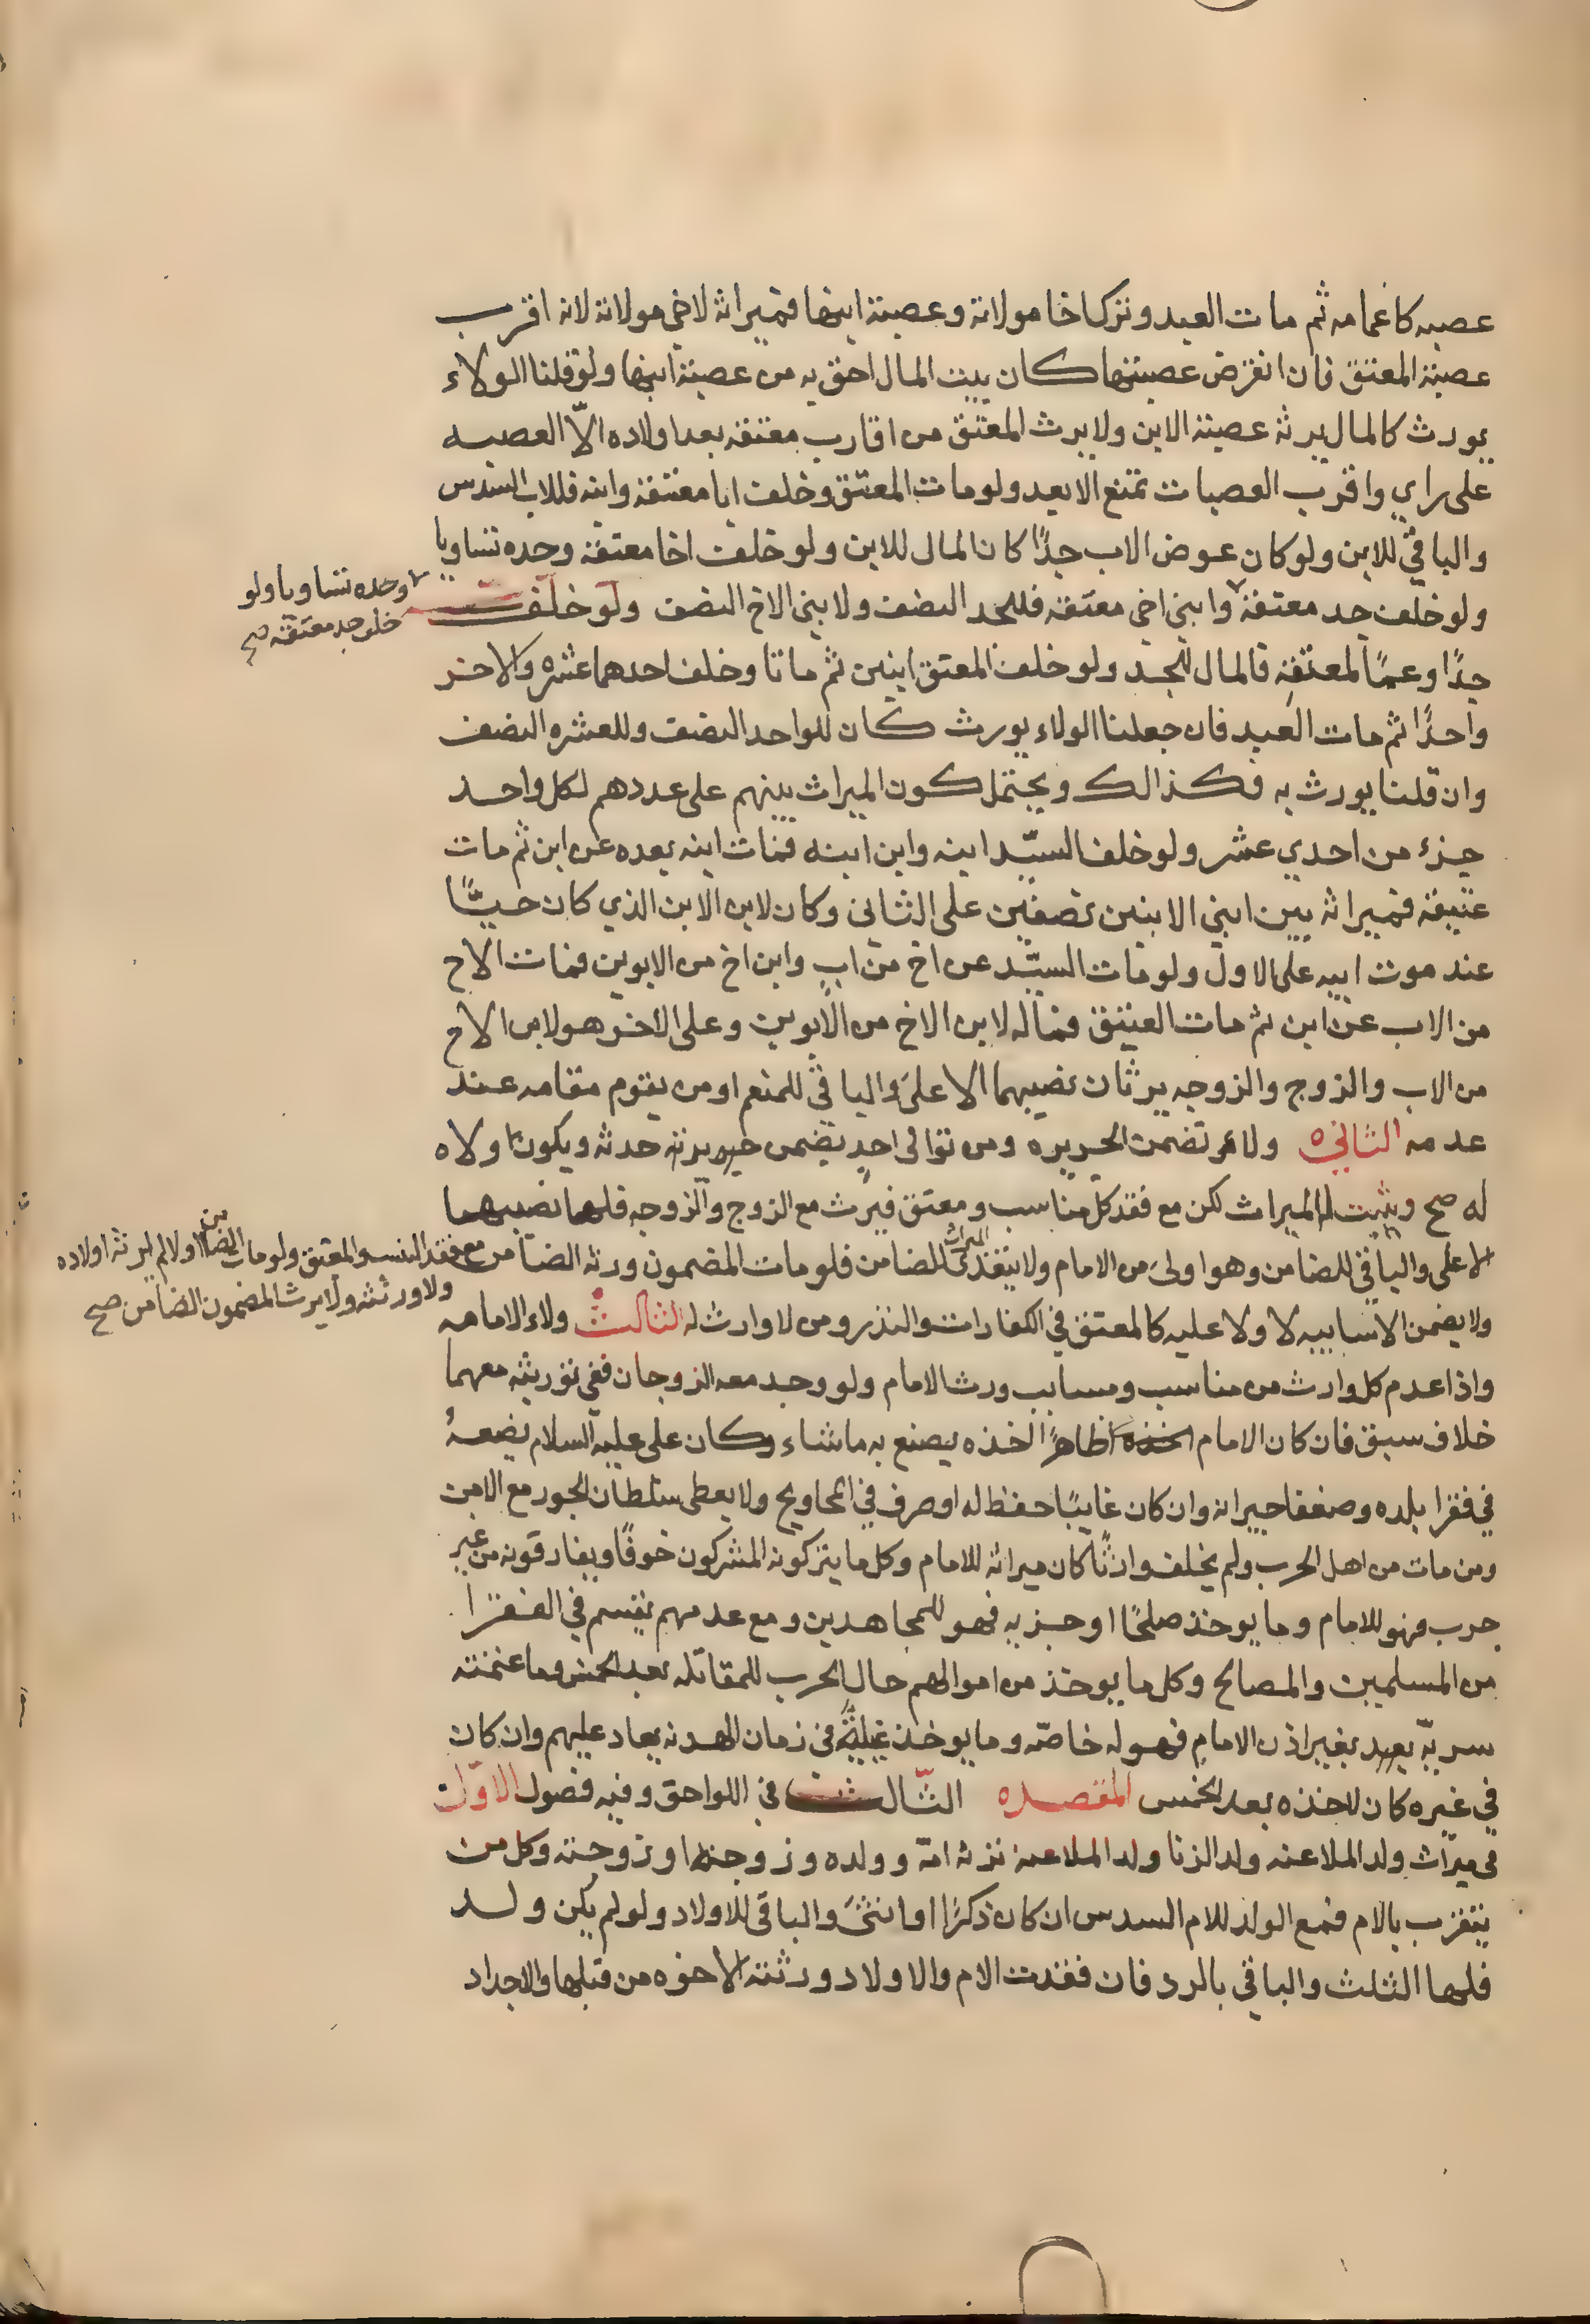 عصبه كاعمامه ثم مات العبد وترك اخا مولاته وعصبة ابنها فميراثه لاخي مولاته لانه اقرب
عصبة المعتق فان انقرض عصبتها كان بيت المال احق به من عصبة ابنها ولو قلنا الولاء
يورث كالمال يرثه عصبة الابن ولا يرث المعتق من اقارب معتقه بعد اولاده الّا العصبه
على راي واقرب العصبات تمنع الابعد ولو مات المعتق وخلف ابا معتقه وابنه فللاب السدس
والباقي للابن ولو كان عوض الاب جدًا كان المال للابن ولو خلف اخا معتقه وحده تساويا
ولو خلف جد معتقه وابني اخي معتقه فللجد النصف ولابني الاخ النصف ولو خلف
وجده تساويا ولو
خلف جد معتقه صح
جدًا وعمًا لمعتقه فالمال للجد ولو خلف المعتق ابنين ثم ماتا وخلف احدهما عشره والاخر
واحدًا ثم مات العبد فان جعلنا الولاء يورث كان للواحد النصف وللعشره النصف
وان قلنا يورث به فكذالك ويحتمل كون الميراث بينهم على عددهم لكل واحد
جزء من احدي عشر ولو خلف السيّد ابنه وابن ابنه فمات ابنه بعده عن ابن ثم مات
عتيقه فميراثه بين ابني الابنين نصفين على الثاني وكان لابن الابن الذي كان حيًّا
عند موت ابيه على الاول ولو مات السيّد عن اخ من اب وابن اخ من الابوين فمات الاخ
من الاب عن ابن ثم مات العتيق فماله لابن الاخ من الابوين وعلى الاخر هو لابن الاخ
من الاب والزوج والزوجه يرثان نصيبهما الاعلى والباقي للمنعم او من يقوم مقامه عند
عدمه الثاني ولاء تضمن الجريره ومن توالى احدٍ يضمن جريرته حدثه ويكون ولاه
له صح ويثبت به الميراث لكن مع فقد كل مناسب ومعتق فيرث مع الزوج والزوجه فلهما نصيبهما
الاعلى والباقي للضامن وهو اولى من الامام ولا يتعدى الميراث للضامن فلو مات المضمون ورثه الضامن
مع فقد النسب والمعتق ولو مات الضامن اولا لم يرثه اولاده
ولا ورثته ولا يرث المضمون الضامن صح
ولا يضمن الا سايبه لا ولا عليه كالمعتق في الكفارات والنذر ومن لا وارث له الثالث ولاء الامامه
واذا عدم كل وارث من مناسب ومسابب ورث الامام ولو وجد معه الزوجان ففي توريثه معهما
خلاف سبق فان كان الامام ظاهرًا اخذه يصنع به ما شاء وكان على عليه السلام يضعه
في فقرا بلده وضعفا جيرانه وان كان غايبًا حفظ له او صرف في المحاويج ولا يعطى سلطان الجور مع الامن
ومن مات من اهل الحرب ولم يخلف وارثًا كان ميراثه للامام وكل ما يتركونه المشركون خوفًا ويفارقونه من غير
حرب فهو للامام وما يوخذ صلحًا او جزيه فهو للمجاهدين ومع عدمهم يقسم في الفقرا
من المسلمين والمصالح وكل ما يوخذ من اموالهم حال الحرب للمقاتله بعد الخمس وما غنمته
سريّه بغير اذن الامام فهو له خاصّه وما يوخذ غيلةً في زمان الهدنه يعاد عليهم وان كان
في غيره كان لاخذه بعد الخمس المقصده الثّالث في اللواحق وفيه فصول الاوّل
في ميراث ولد الملاعنه ولد الزنا ولد الملاعنة ترثه امّه وولده وزوجها او زوجته وكل من
يتقرب بالام فمع الولد للام السدس ان كان ذكرًا او انثى والباقي للاولاد ولو لم يكن ولد
فلها الثلث والباقي بالرد فان فقدت الام والاولاد ورثته الاخوه من قبلها والاجداد